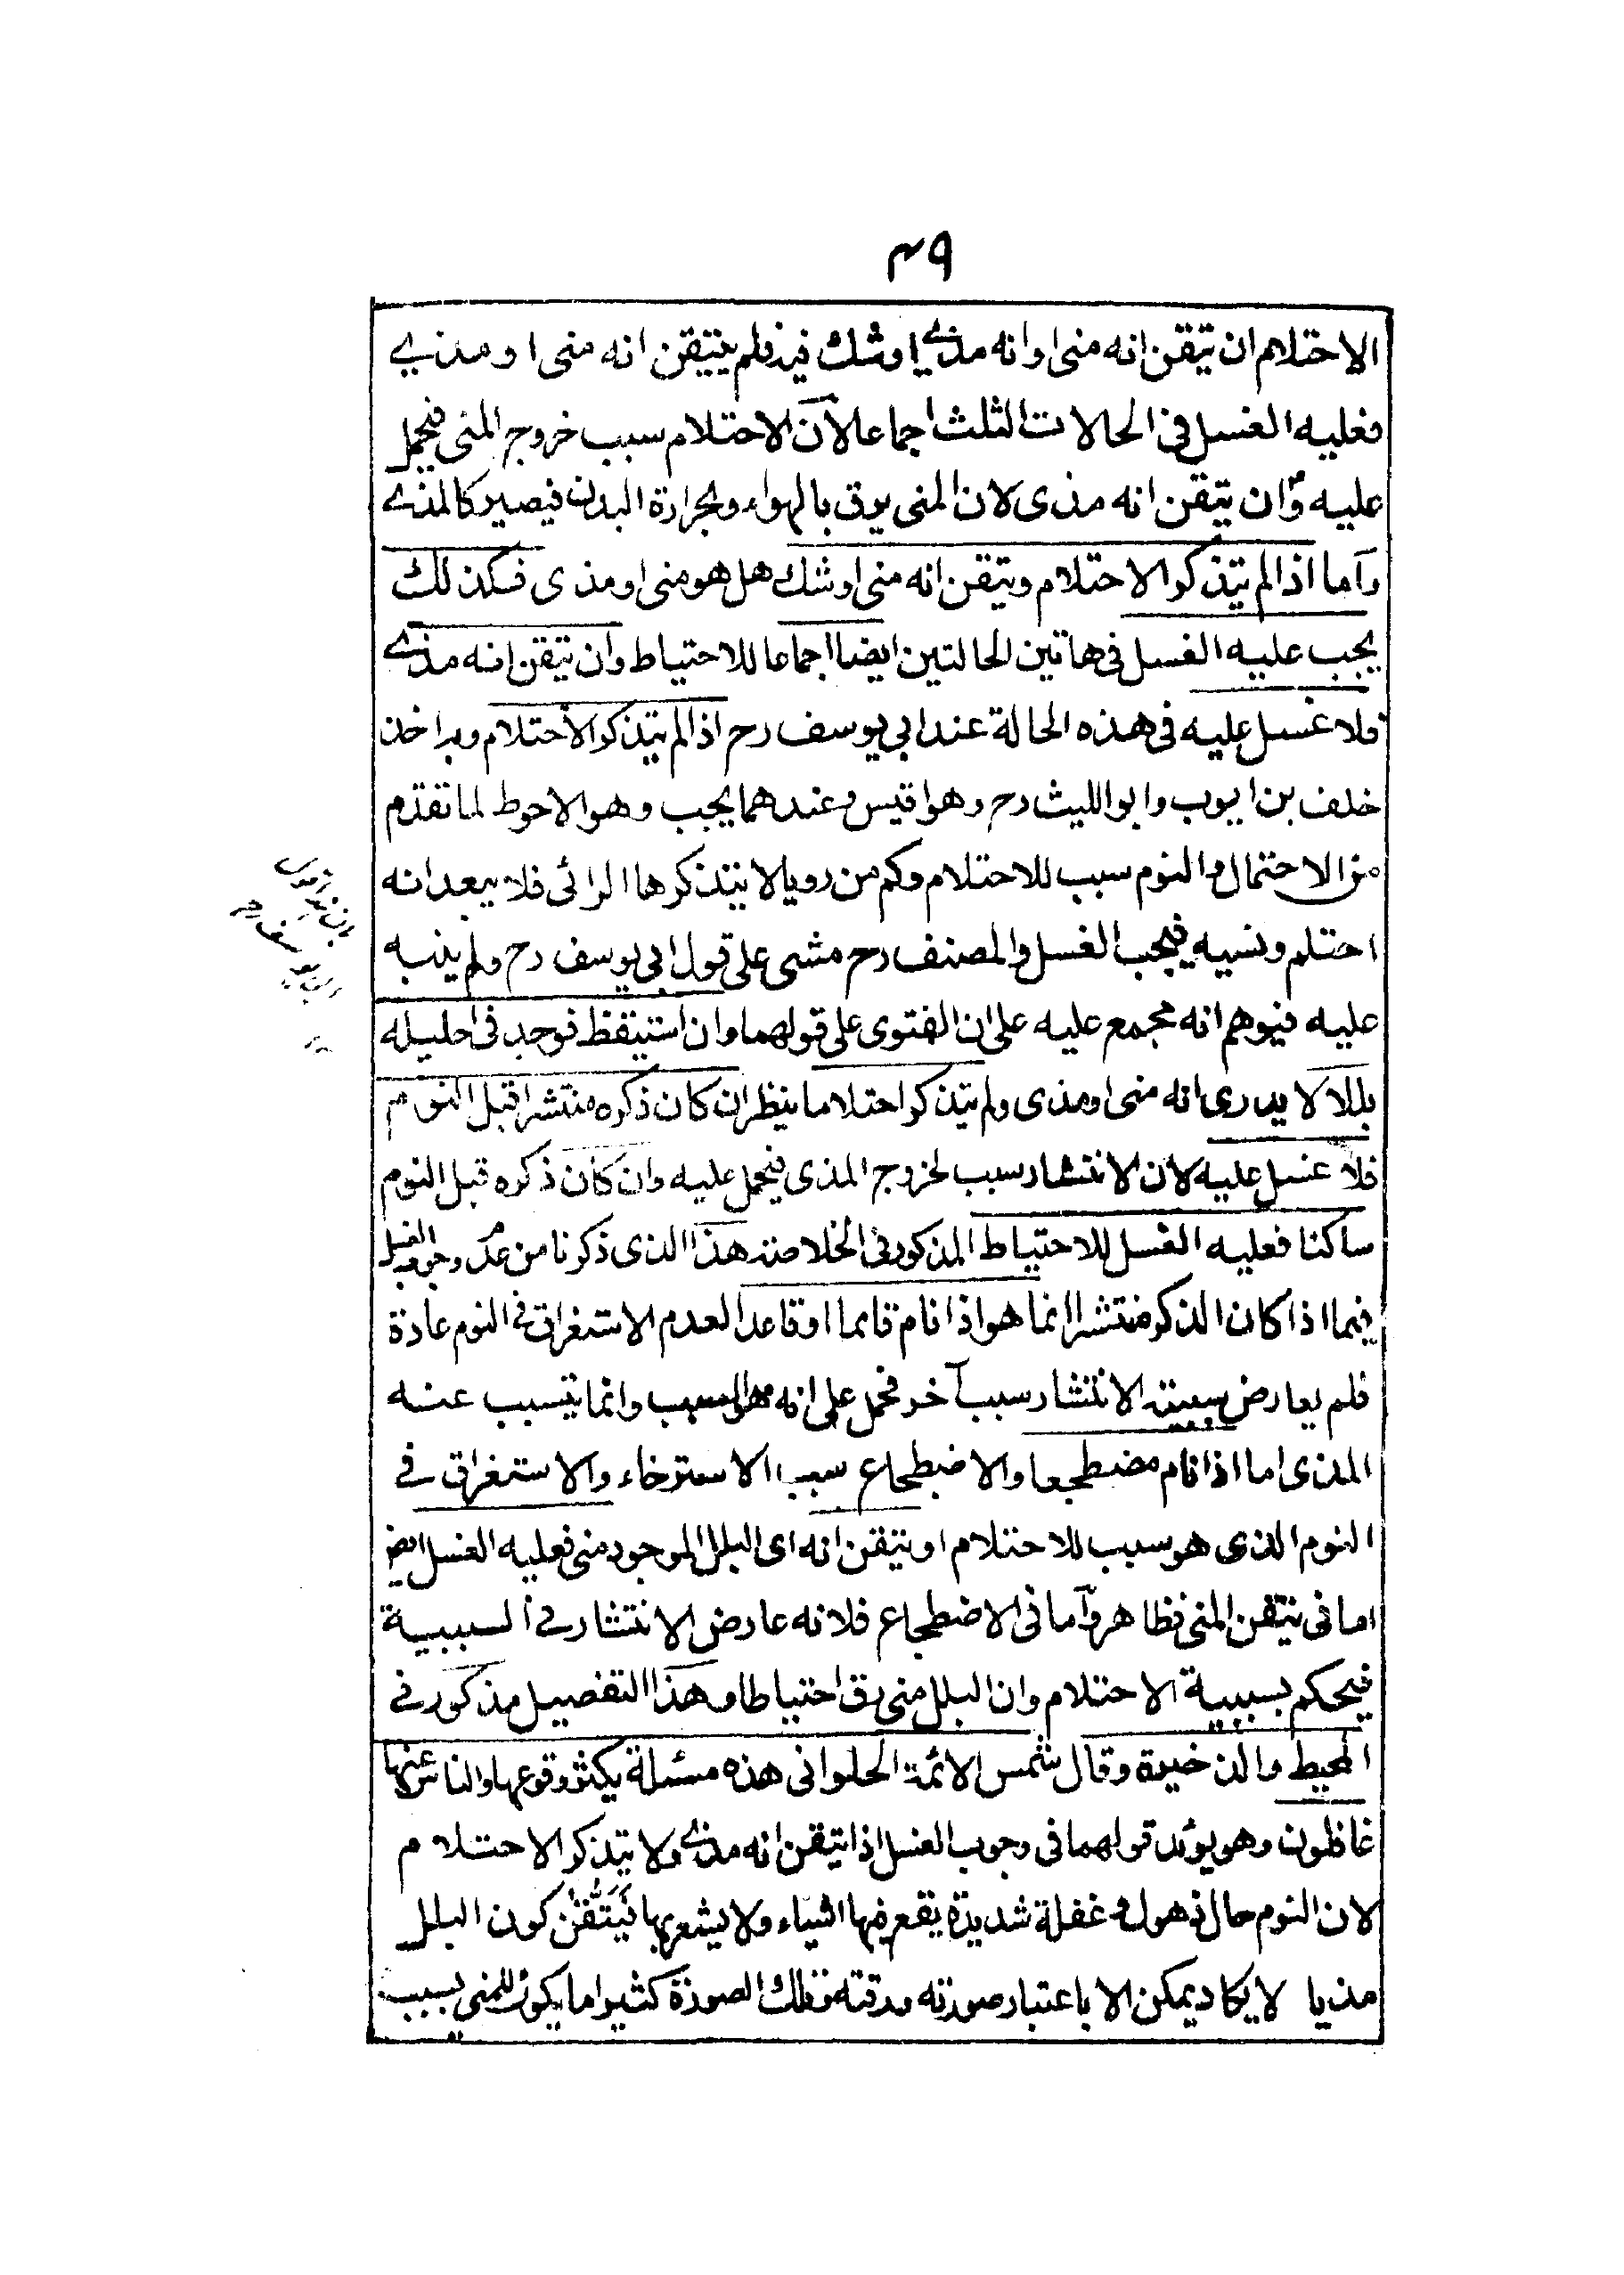 ۴۹
الاحتلام ان تيقن انه منى او انه مذى او شك فيه فلم يتيقن انه منى او مذى
فعليه الغسل فى الحالات الثلث اجماعا لان الاحتلام سبب خروج المنى فيحمل
عليه وان تيقن انه مذى لان المنى يرق بالهواء وبحرارة البدن فيصير كالمذى
وآما اذا لم يتذكر الاحتلام وتيقن انه منى او شك هل هو منى او مذى فكذلك
يجب عليه الغسل فى هاتين الحالتين ايضا اجماعا للاحتياط وان تيقن انه مذى
فلا غسل عليه فى هذه الحالة عند ابى يوسف رح اذا لم يتذكر الاحتلام وبه اخذ
خلف بن ايوب وابو الليث رح وهو اقيس وعندهما يجب وهو الاحوط لما تقدم
من الاحتمال والنوم سبب للاحتلام وكم من رويا لا يتذكرها الرائى فلا يبعد انه
احتلم ونسيه فيجب الغسل والمصنف رح مشى على قول ابى يوسف رح ولم ينبه
عليه فيوهم انه مجمع عليه على ان الفتوى على قولهما وان استيقظ فوجد فى احليله
بللا لا يدرى انه منى او مذى ولم يتذكر احتلاما ينظر ان كان ذكره منتشرا قبل النوم
فلا غسل عليه لان الانتشار سبب لخروج المذى فيحمل عليه وان كان ذكره قبل النوم
ساكنا فعليه الغسل للاحتياط المذكور فى الخلاصة هذا الذى ذكرنا من عدم وجوب الغسل
فيما اذا كان الذكر منتشرا انما هو اذا نام قائما او قاعدا لعدم الاستغراق فى النوم عادة
فلم يعارض سببية الانتشار سبب آخر فحمل على انه هو السبب وانما يتسبب عنه
المذى اما اذا نام مضطجعا والاضطجاع سبب الاسترخاء والاستغراق فى
النوم الذى هو سبب للاحتلام او تيقن انه اى البلل الموجود منى فعليه الغسل ايض
اما فى تيقن المنى فظاهر وآما فى الاضطجاع فلانه عارض الانتشار فى السببية
فيحكم بسببية الاحتلام وان البلل منى رق احتياطا وهذا التفصيل مذكور فى
المحيط والذخيرة وقال شمس الائمة الحلوانى هذه مسئلة يكثر وقوعها والناس عنها
غافلون وهو يؤيد قولهما فى وجوب الغسل اذا تيقن انه مذى ولا يتذكر الاحتلام
لان النوم حال ذهول وغفلة شديدة يقع فيها اشياء ولا يشعر بها فتيقن كون البلل
مذيا لا يكاد يمكن الا باعتبار صورته ورقته وتلك الصورة كثيرا ما يكون للمنى بسبب